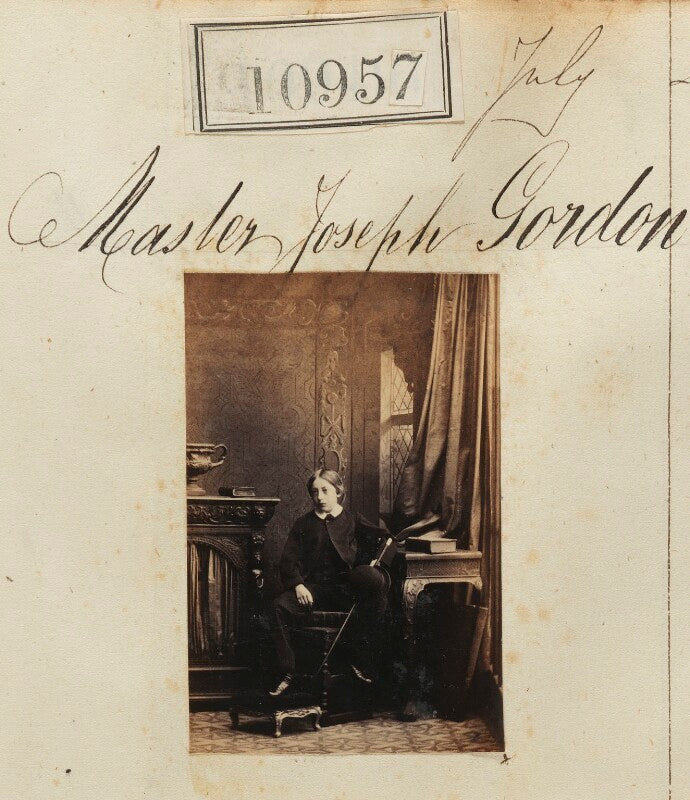 10957
July
Master Joseph Gordon